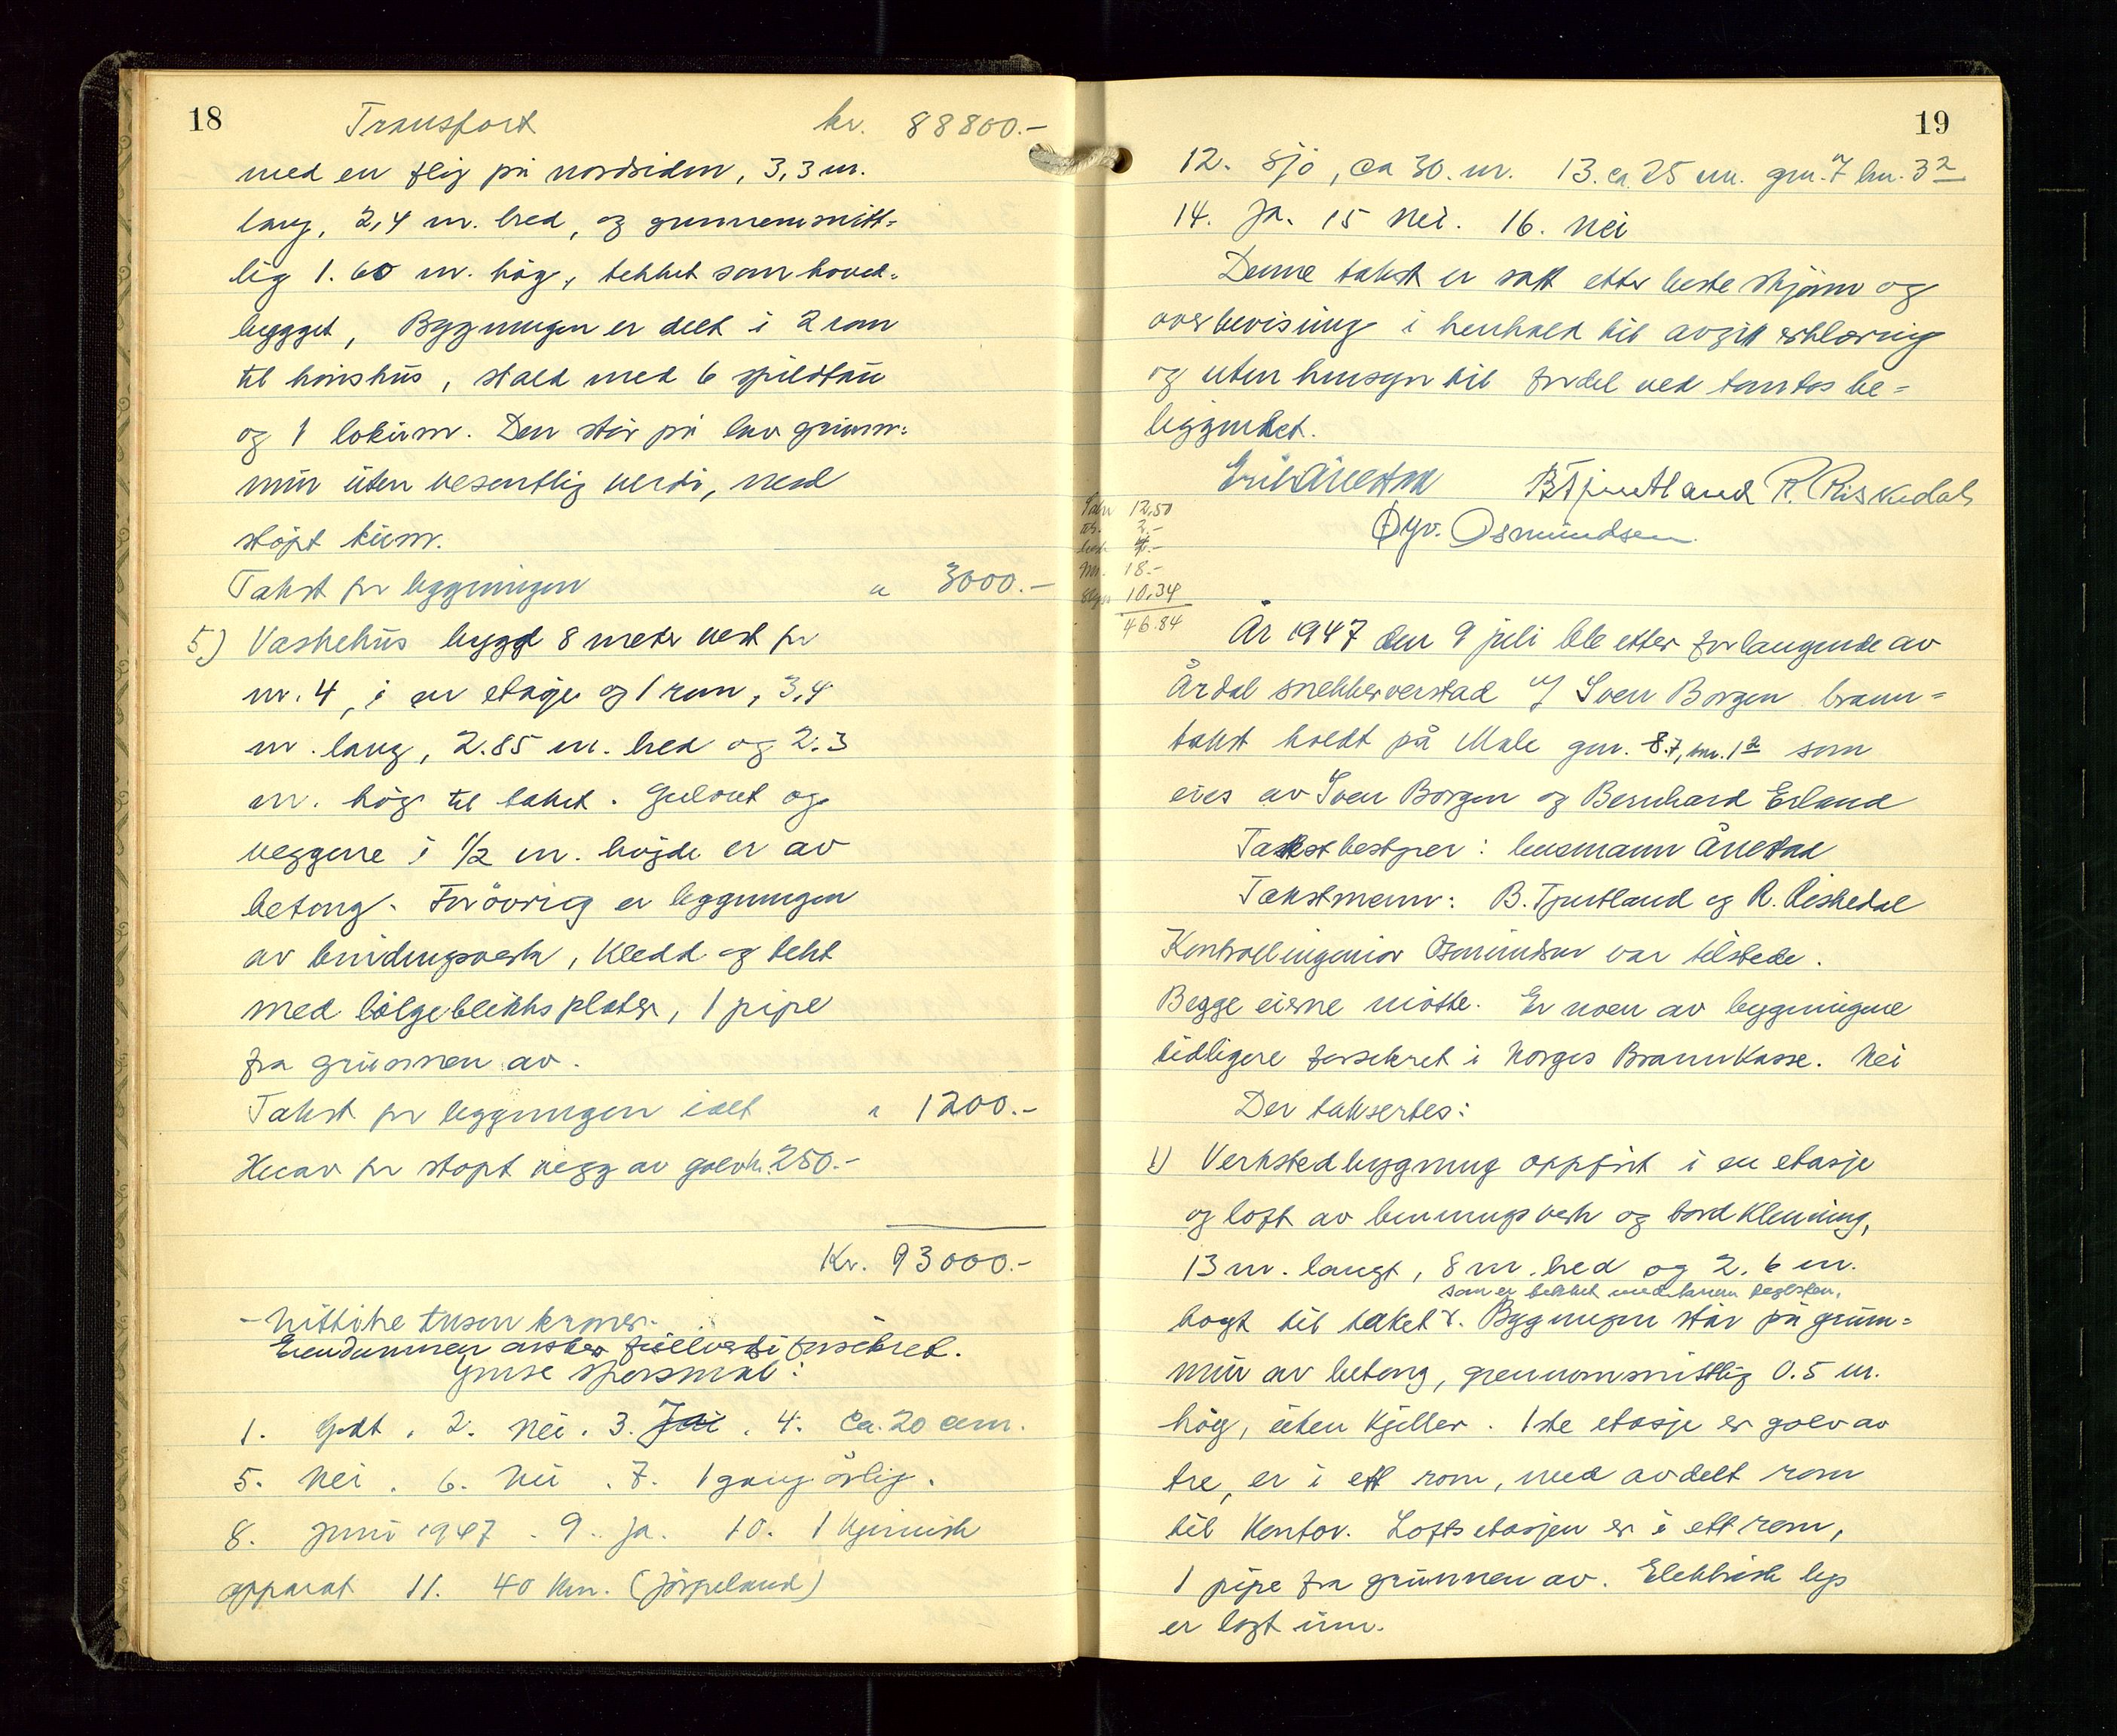 18
Transport kr. 88800.-
med en fløy på nordsiden, 3,3 m.
lang, 2,4 m. bred, og gjennemsnitt-
lig 1.60 m. høg, tekket som hoved-
bygget, Bygningen er delt i 2 rom
til hönshus, stald med 6 spildtau
og 1 lokum. Den står på lav grunn-
mur uten vesentlig verdi, med
støpt kum.
Takst for bygningen " 3000.-
5) Vaskehus bygd 8 meter vest for
nr. 4, i en etasje og 1 rom, 3,4
m. lang, 2.85 m. bred og 2.3
m. høg til taket. Gulvet og
veggene i 1/2 m. højde er av
betong. Forövrig er bygningen
av bindingsverk, kledd og tekt
med bølgeblikksplater, 1 pipe
fra grunnen av.
Takst for bygningen ialt " 1200.-
Herav for støpt vegg av golv kr. 250.-
Kr. 93000.-
- Nittitre tusen kroner.
Eiendommen ønskes fullverdi forsikret.
Gruse spørsmål:
1. Godt. 2. Nei. 3. Ja. 4. Ca. 20 cm.
5. Nei. 6. Nei. 7. 1 gang årlig.
8. Juni 1947. 9. Ja. 10. 1 kjemisk
apparat 11. 40 km. (Jørpeland)
19
12. Sjø, ca 30. m. 13. ca. 25 m. gnr. 7 bnr. 32
14. Ja. 15 Nei. 16. Nei
Denne takst er satt etter beste skjønn og
overbevisning i henhold til avgitt erklæring
og uten hensyn til fordel ved tomtas be-
liggenhet.
Erik Ånestad B Tjentland R. Riskedal
Øyv. Osmundsen.
12,50
2,-
4.-
18.-
10,34
46.84
År 1947 den 9 juli ble etter forlangende av
Årdal snekkerverstad v/ Sven Borgen brann-
takst holdt på Mæle gnr. 8.7, bnr. 12 som
eies av Sven Borgen og Bernhard Erland
Takstbestyrer: lensmann Ånestad
Takstmenn: B. Tjentland og R. Riskedal
Kontrollingeniør Osmundsen var tilstede.
Begge eierne møtte. Er noen av bygningene
tidligere forsikret i Norges Brannkasse. Nei
Der takseres:
1) Verkstedbygning oppført i en etasje
og loft av bindingsverk og bordkledning,
13 m. langt, 8 m. bred og 2.6 m.
som er tekket med krum teglsten,
høgt til taket. Bygningen står på grunn-
mur av betong, gjennomsnittlig 0.5 m.
høg, uten kjeller. 1ste etasje er golv av
tre, er i ett rom, med avdelt rom
til kontor. Loftsetasjen er i ett rom,
1 pipe fra grunnen av. Elektrisk lys
er lagt inn.